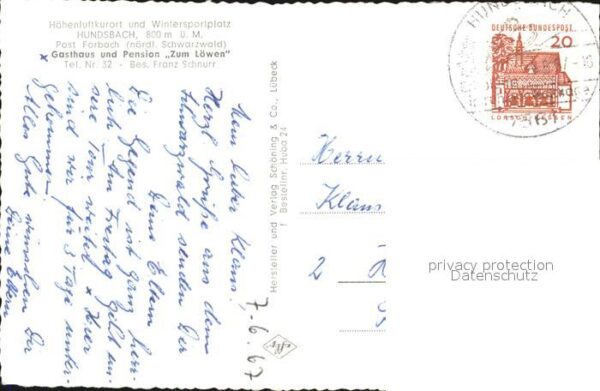 Höhenluftkurort und Wintersportplatz
HUNDSBACH, 800 m ü. M.
Post Forbach (nördl. Schwarzwald)
Gasthaus und Pension „Zum Löwen"
Tel. Nr. 32 - Bes. Franz Schnurr
Mein lieber Klaus!
Herzl. Grüße aus dem
Schwarzwald senden Dir
Deine Eltern
Die Gegend ist ganz herr-
lich. Am Freitag geht un-
sere Tour weiter. x Hier
sind wir für 3 Tage unter-
gekommen.
Alles Gute wünschen Dir
Deine Eltern
7.-6.67
Hersteller und Verlag Schöning & Co., Lübeck
Bestellnr. Huba 24
Herrn
Klaus
2
HUNDSBACH
DEUTSCHE BUNDESPOST
20
LORSCH/HESSEN
privacy protection
Datenschutz